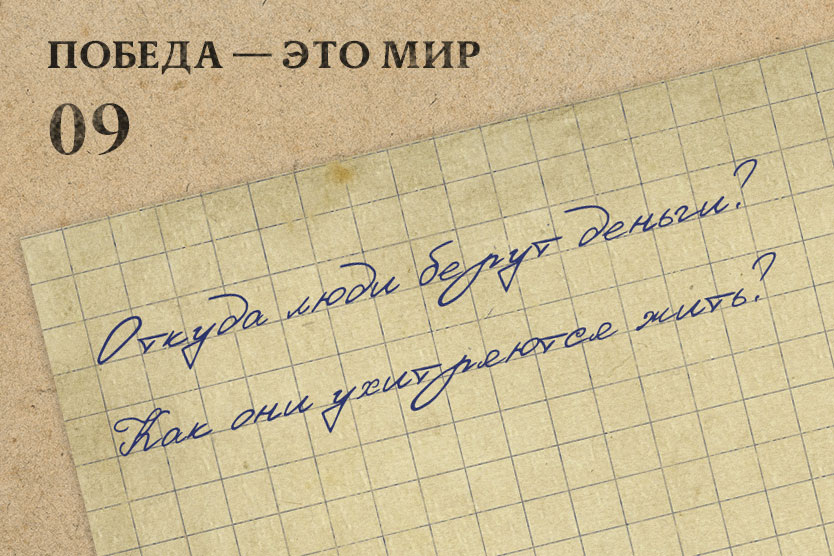 ПОБЕДА — ЭТО МИР
09
Откуда люди берут деньги?
Как они ухитряются жить?